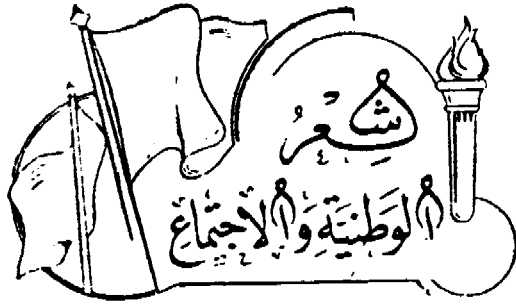 شِعْرُ
الوَطَنِيَّةِ وَالاجتِمَاعِ